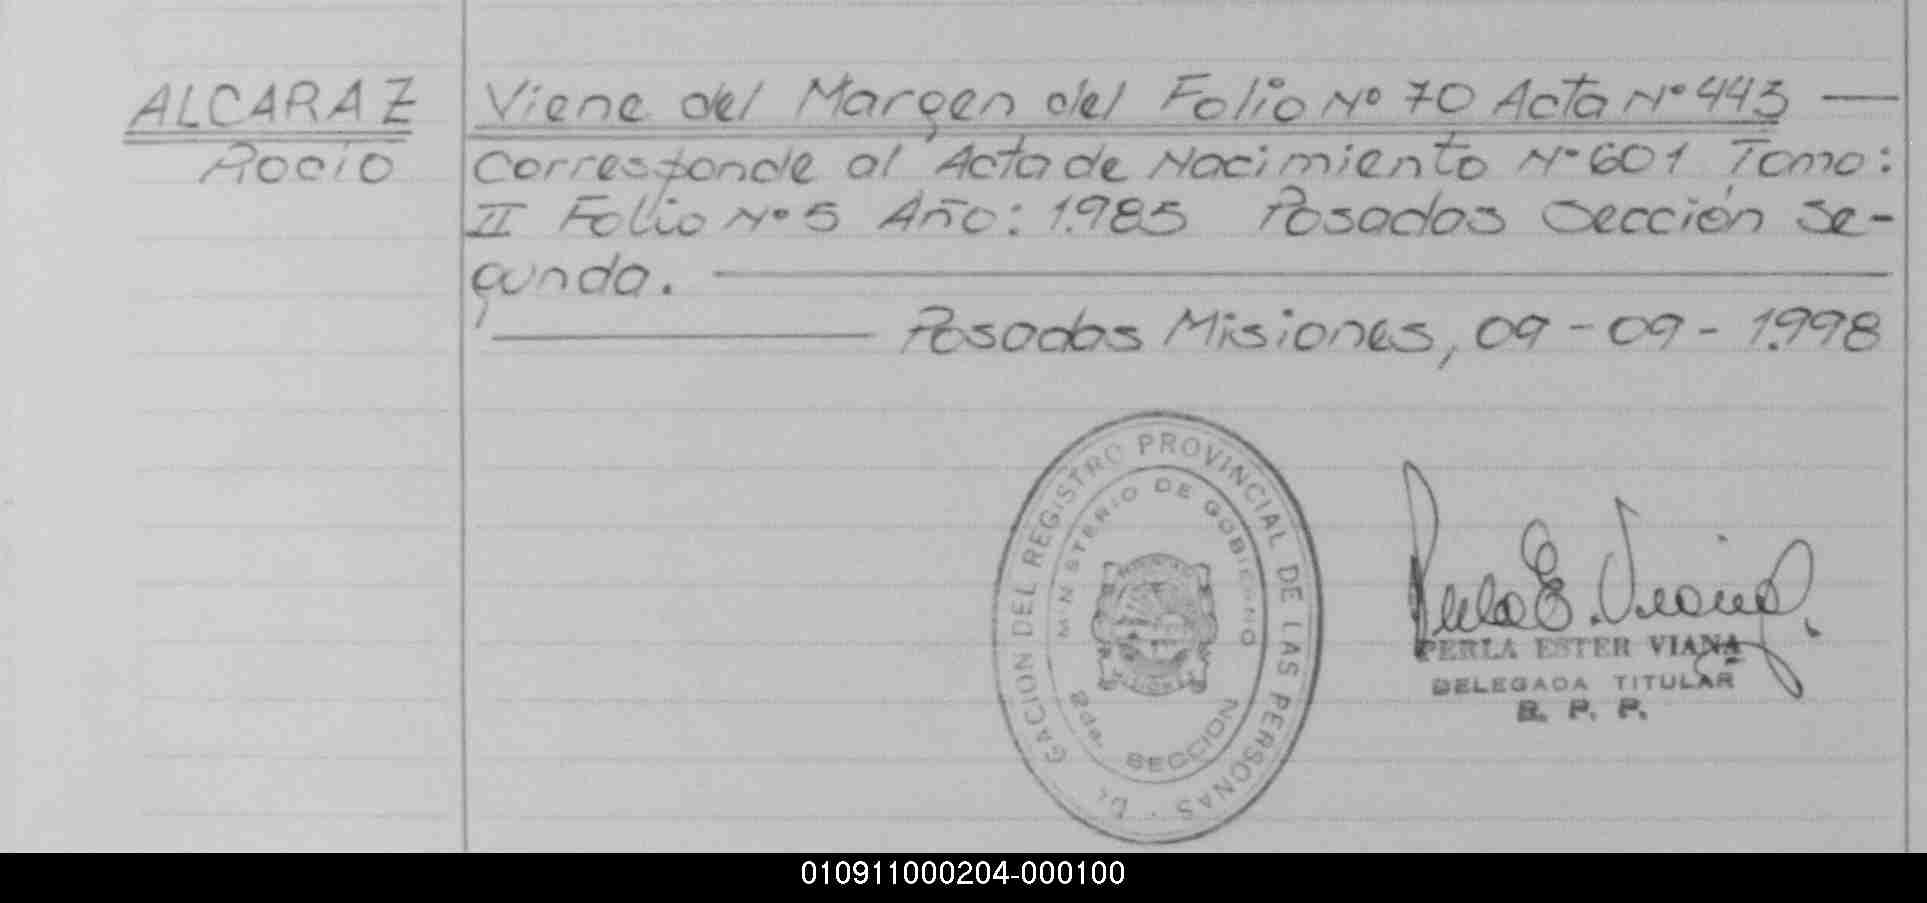 ALCARAZ
Rocio
Viene del Margen del Folio Nº 70 Acta Nº 443 —
Corresponde al Acta de Nacimiento Nº 601 Tomo:
II Folio Nº 5 Año: 1.985 Posadas Sección Se-
gunda.
Posadas Misiones, 09-09-1.998
GACION DEL REGISTRO PROVINCIAL DE LAS PERSONAS
MINISTERIO DE GOBIERNO
2da. SECCION
Perla E. Viana
PERLA ESTER VIANA
DELEGADA TITULAR
R. P. P.
010911000204-000100